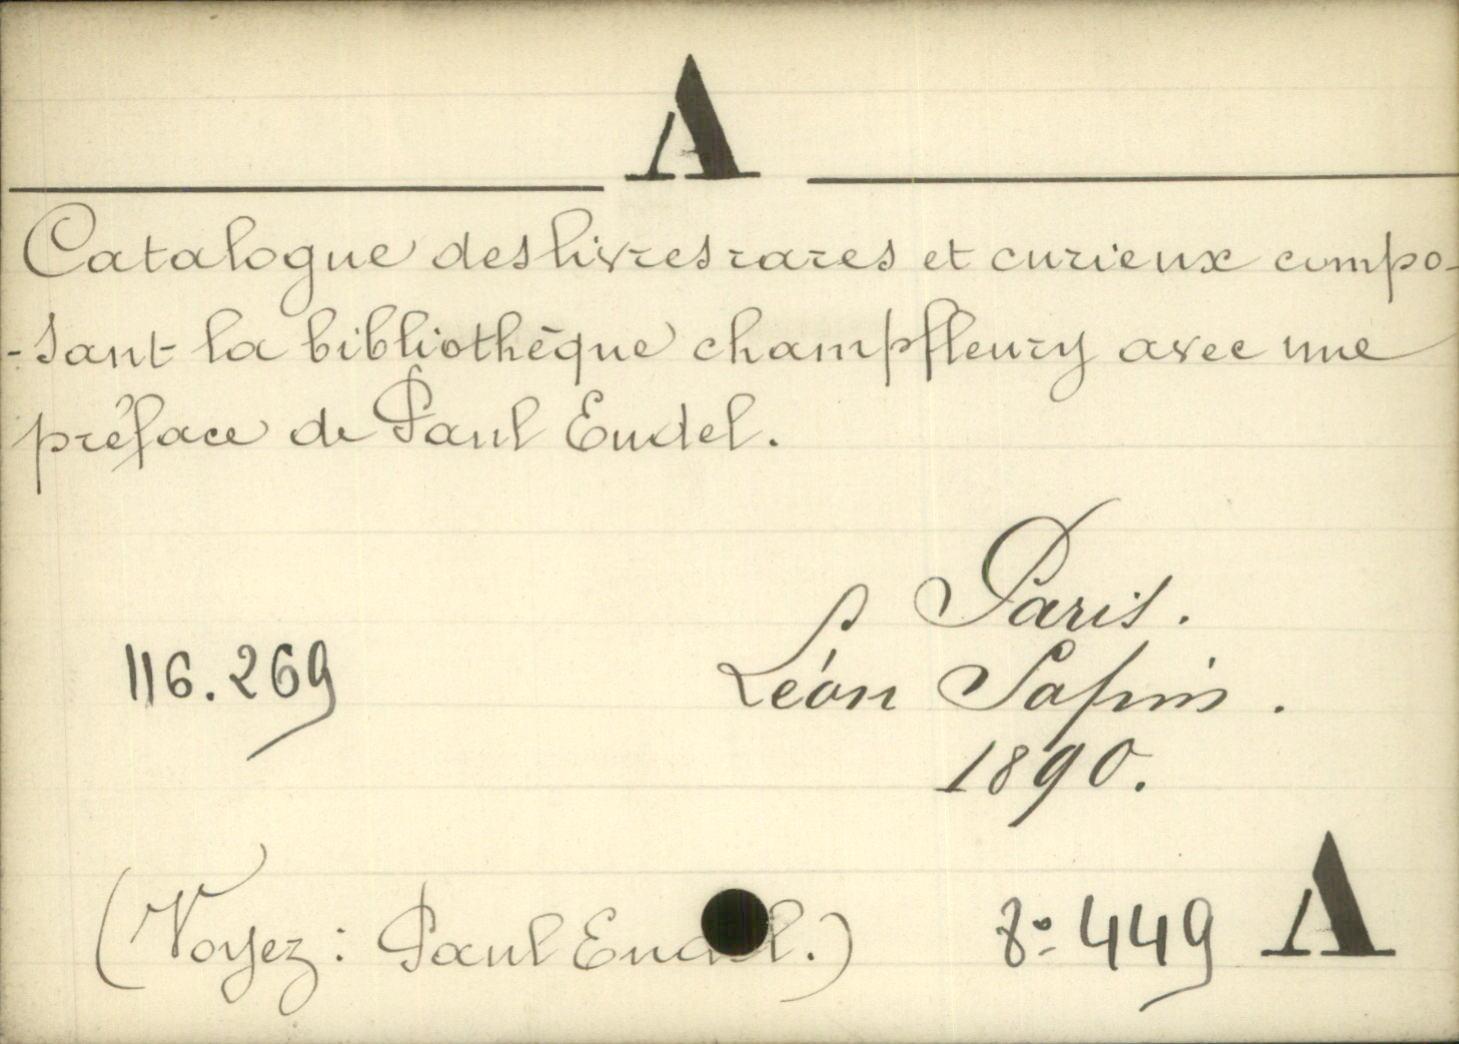 A
Catalogue des livres rares et curieux compo-
-sant la bibliothèque champfleury avec une
préface de Paul Eudel.
Paris.
116.269
Léon Sapin.
1890.
(Voyez: Paul Eudel.) 8° 449 A